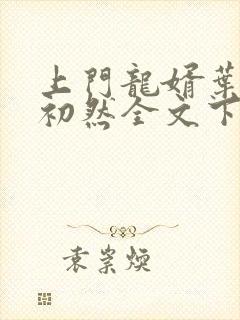 上門龍婿葉
初然全文下
袁崇煥